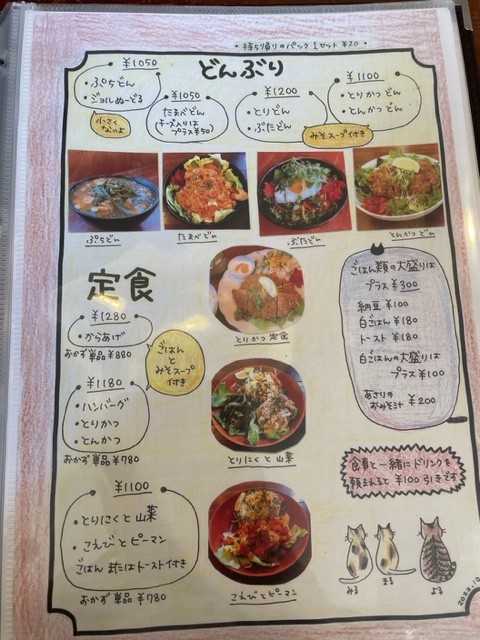 ・持ち帰りのパック1セット¥20・
どんぶり
¥1050
・ぷちどん
・ジョルぬーどる
小さくないよ
¥1050
たまべどん
(チーズ入りはプラス¥50)
¥1200
・とりどん
・ぶたどん
¥1100
・とりかつどん
・とんかつどん
みそスープ付き
ぷちどん
たまべどん
ぶたどん
とんかつどん
定食
¥1280
・からあげ
おかず単品¥880
ごはん
と
みそスープ
付き
¥1180
・ハンバーグ
・とりかつ
・とんかつ
おかず単品¥780
¥1100
・とりにくと山菜
・こえびとピーマン
ごはんまたはトースト付き
おかず単品¥780
とりかつ定食
とりにくと山菜
こえびとピーマン
ごはん類の大盛りは
プラス¥300
納豆¥100
白ごはん¥180
トースト¥180
白ごはんの大盛りは
プラス¥100
あさりの
おみそ汁¥200
食事と一緒にドリンクを
頼まれると¥100引きです
みる
まる
よる
2022.10